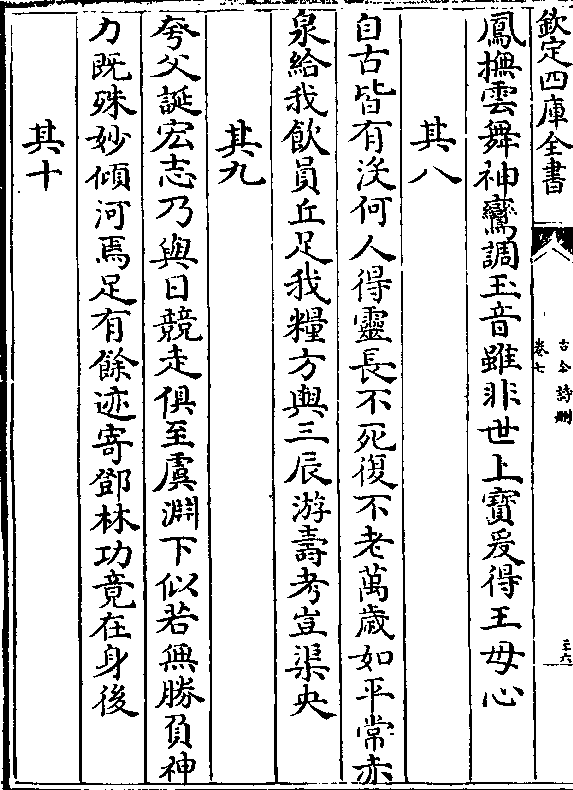 欽定四庫全書
古今詩刪
卷七
二十六
鳳撫雲舞神鸞調玉音雖非世上寶爰得王母心
其八
自古皆有沒何人得靈長不死復不老萬歲如平常赤
泉給我飲員丘足我糧方與三辰游壽考豈渠央
其九
夸父誕宏志乃與日競走俱至虞淵下似若無勝負神
力既殊妙傾河焉足有餘迹寄鄧林功竟在身後
其十